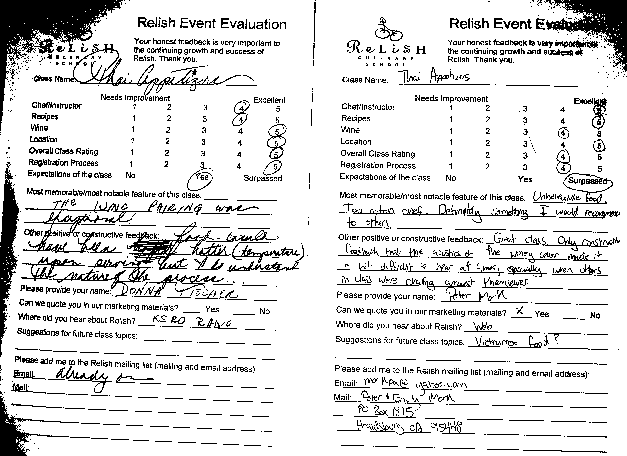 Relish Event Evaluation
RELISH
CULINARY
SCHOOL
Your honest feedback is very important to
the continuing growth and success of
Relish. Thank you.
Class Name: Thai Appetizers
Needs Improvement Excellent
Chef/Instructor 1 2 3 4 5
Recipes 1 2 3 4 5
Wine 1 2 3 4 5
Location 1 2 3 4 5
Overall Class Rating 1 2 3 4 5
Registration Process 1 2 3 4 5
Expectations of the class No Yes Surpassed
Most memorable/most notable feature of this class.
THE WINE PAIRING was
Other positive or constructive feedback: food could
have been hotter (temperature)
upon but I do understand
the nature of the process
Please provide your name: DONNA
Can we quote you in our marketing materials? Yes No
Where did you hear about Relish? KSRO RADIO
Suggestions for future class topics:
Please add me to the Relish mailing list (mailing and email address)
Email: already on
Mail:
Relish Event Evaluation
RELISH
CULINARY
SCHOOL
Your honest feedback is very important to
the continuing growth and success of
Relish. Thank you.
Class Name: Thai Appetizers
Needs Improvement Excellent
Chef/Instructor 1 2 3 4 5
Recipes 1 2 3 4 5
Wine 1 2 3 4 5
Location 1 2 3 4 5
Overall Class Rating 1 2 3 4 5
Registration Process 1 2 3 4 5
Expectations of the class No Yes Surpassed
Most memorable/most notable feature of this class. Unbelievable food,
Definitely something I would recommend
to others.
Other positive or constructive feedback: Great class. Only constructive
feedback that the of the made it
a bit difficult to hear at times, especially when others
in class were chatting amongst themselves
Please provide your name: Peter
Can we quote you in our marketing materials? X Yes No
Where did you hear about Relish? Web
Suggestions for future class topics: Vietnamese food?
Please add me to the Relish mailing list (mailing and email address):
Email: yahoo.com
Mail: Peter &
PO Box 1815
Healdsburg CA 95448